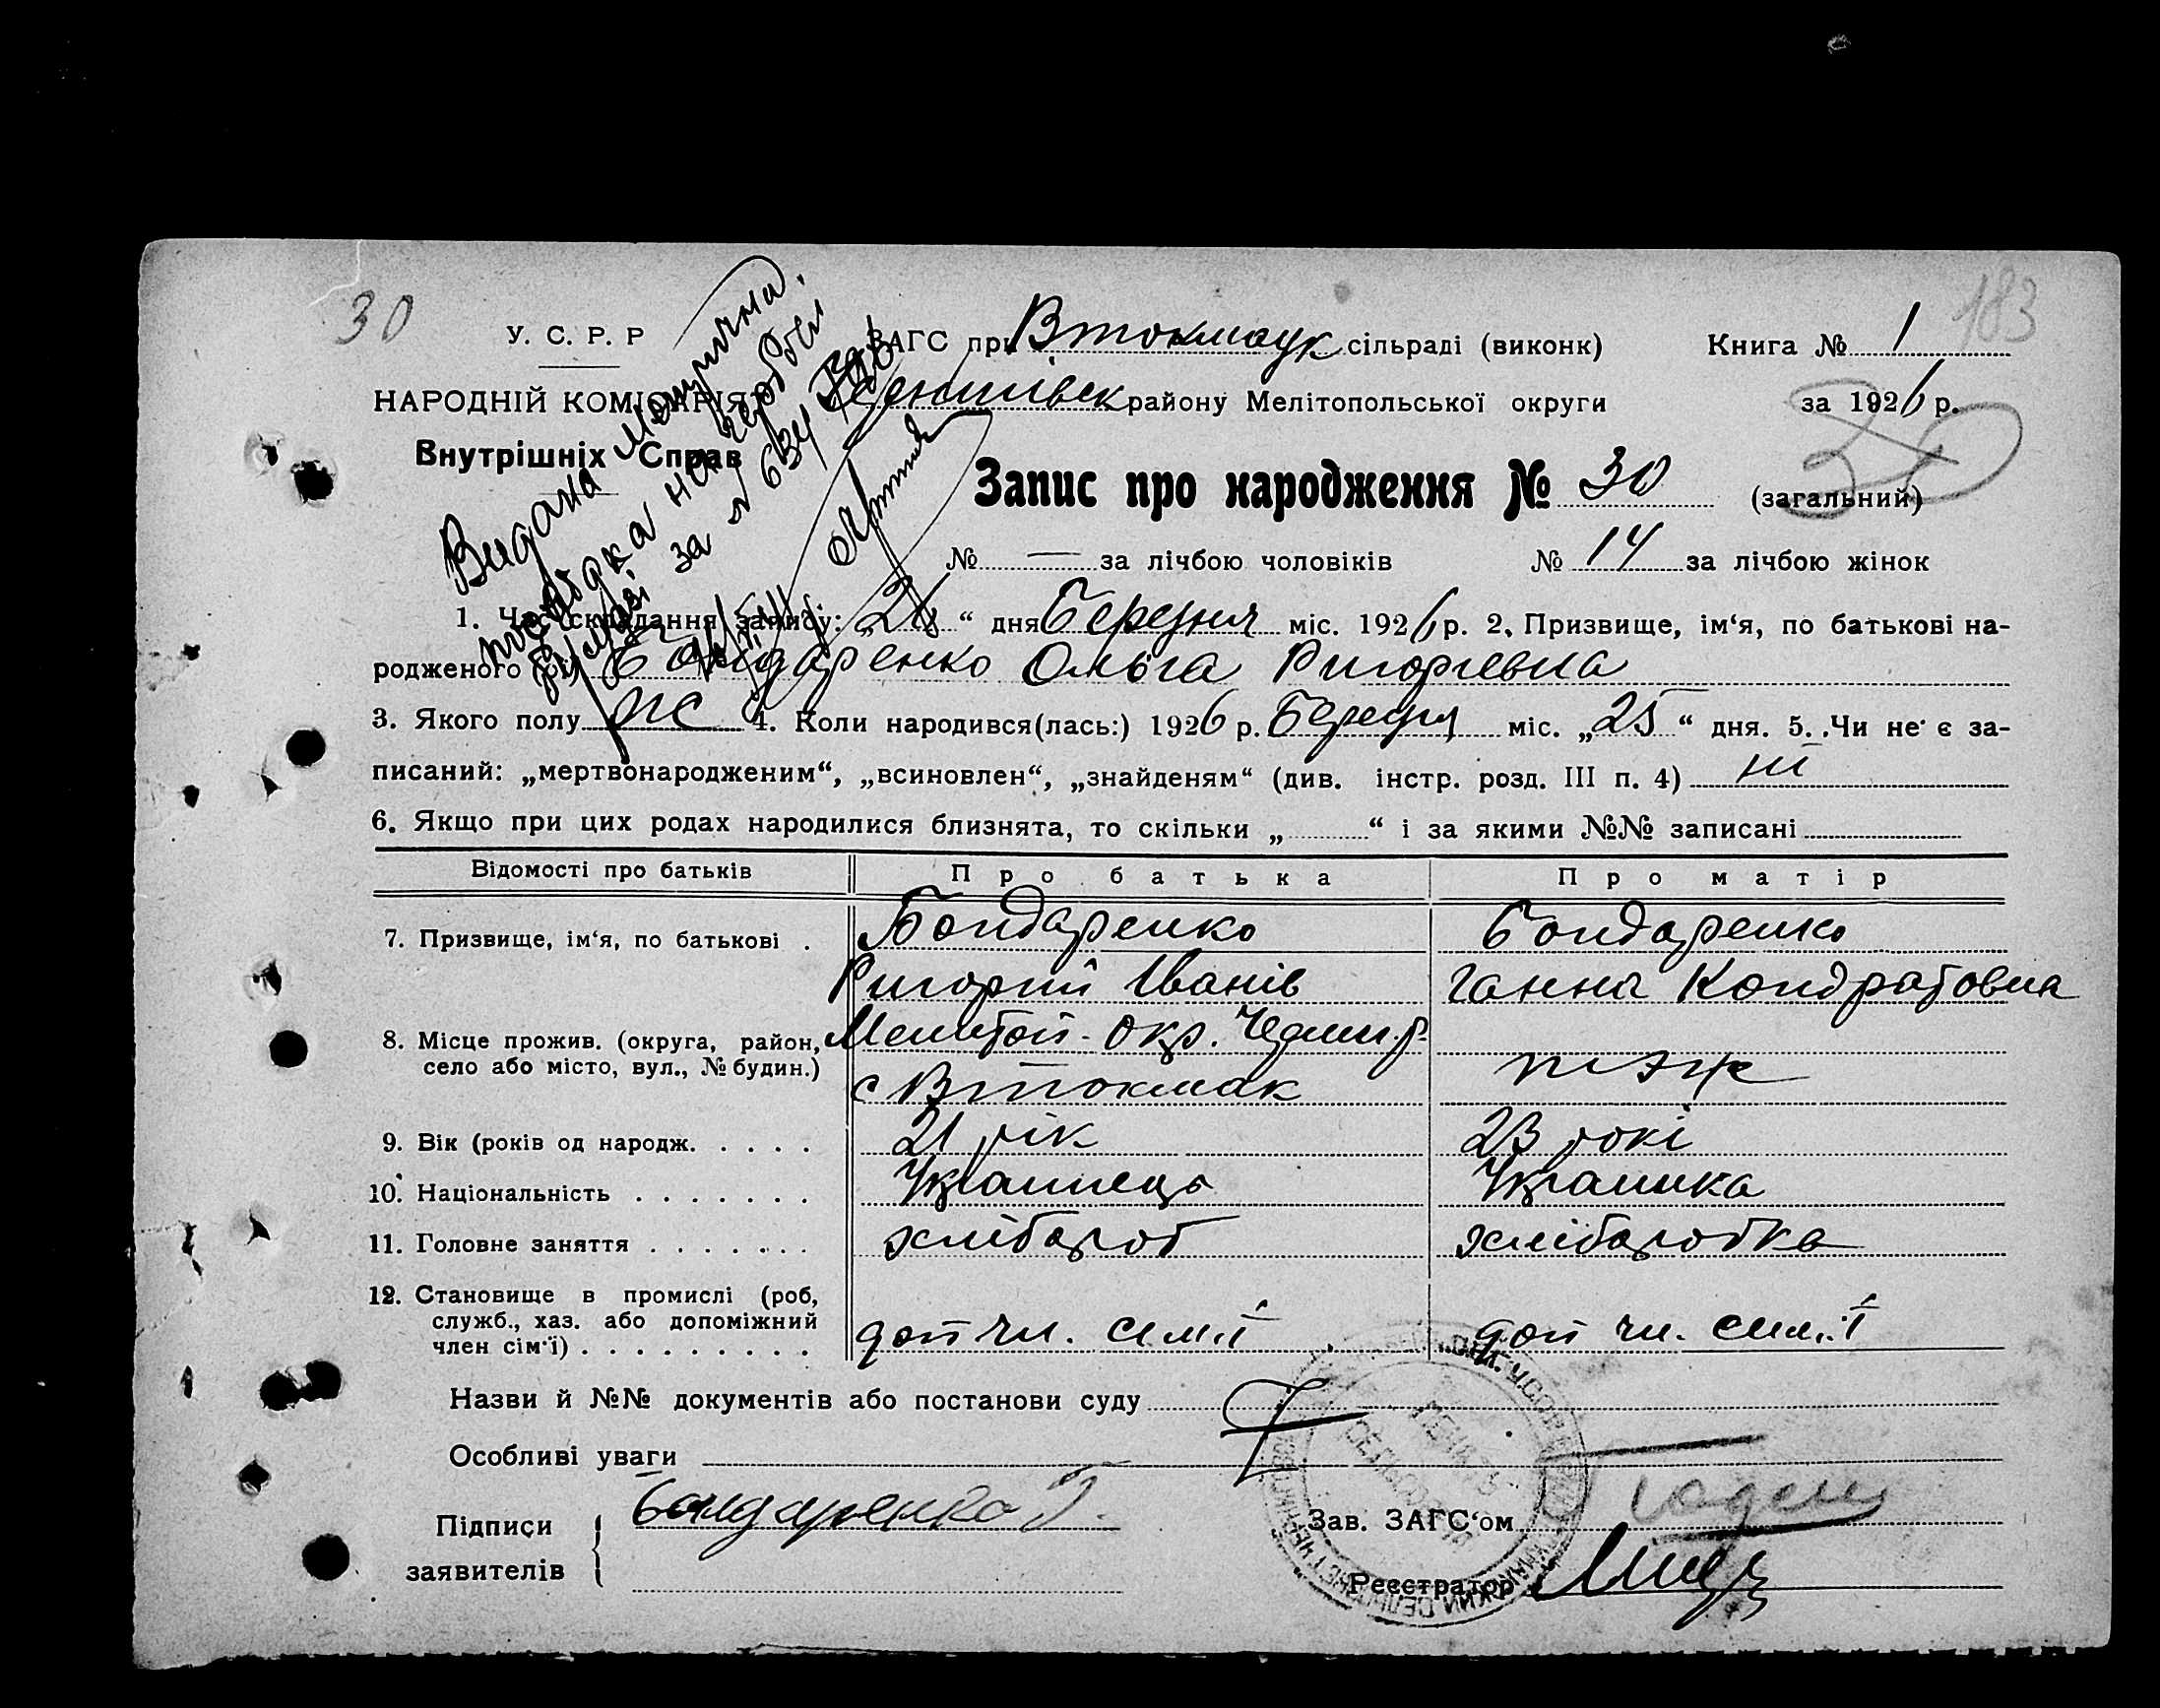 30
183
У. С. Р. Р
ЗАГС при Втокмаук сільраді (виконк)
Книга № 1
НАРОДНІЙ КОМІСАРІЯТ
району Мелітопольської округи
за 1926 р.
30
Внутрішніх Справ
Видана
за № 634
Запис про народження № 30 (загальний)
№ — за лічбою чоловіків № 14 за лічбою жінок
1. Час складання запису: „26“ дня Березня міс. 1926 р. 2. Призвище, ім‘я, по батькові на-
родженого (ої) Бондаренко Ольга Ригорієвна
3. Якого полу ж 4. Коли народився(лась:) 1926 р. Березня міс. „25“ дня. 5. Чи не є за-
писаний: „мертвонародженим“, „всиновлен“, „знайденям“ (див. інстр. розд. III п. 4) ні
6. Якщо при цих родах народилися близнята, то скільки „ “ і за якими №№ записані
Відомості про батьків Про батька Про матір
7. Призвище, ім‘я, по батькові . Бондаренко Бондаренко
Ригорій Іванів Ганна Кондратовна
8. Місце прожив. (округа, район, Мелитоп. Окр.
село або місто, вул., № будин.) с Втокмак
9. Вік (років од народж. . . . . 21 рік 23 рокі
10. Національність . . . . . . . Українець Українка
11. Головне заняття . . . . . . . хлібороб хліборобка
12. Становище в промислі (роб,
служб., хаз. або допоміжний
член сім‘ї) . . . . . . . . . доп чл. сим.ї доп чл. сим.ї
Назви й №№ документів або постанови суду
Особливі уваги
Підписи Бондаренко Г.
заявителів
Зав. ЗАГС‘ом
Реєстратор